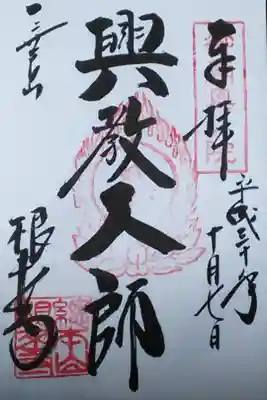 奉拝
平成三十年
十月七日
興教大師
一乗山
根来寺